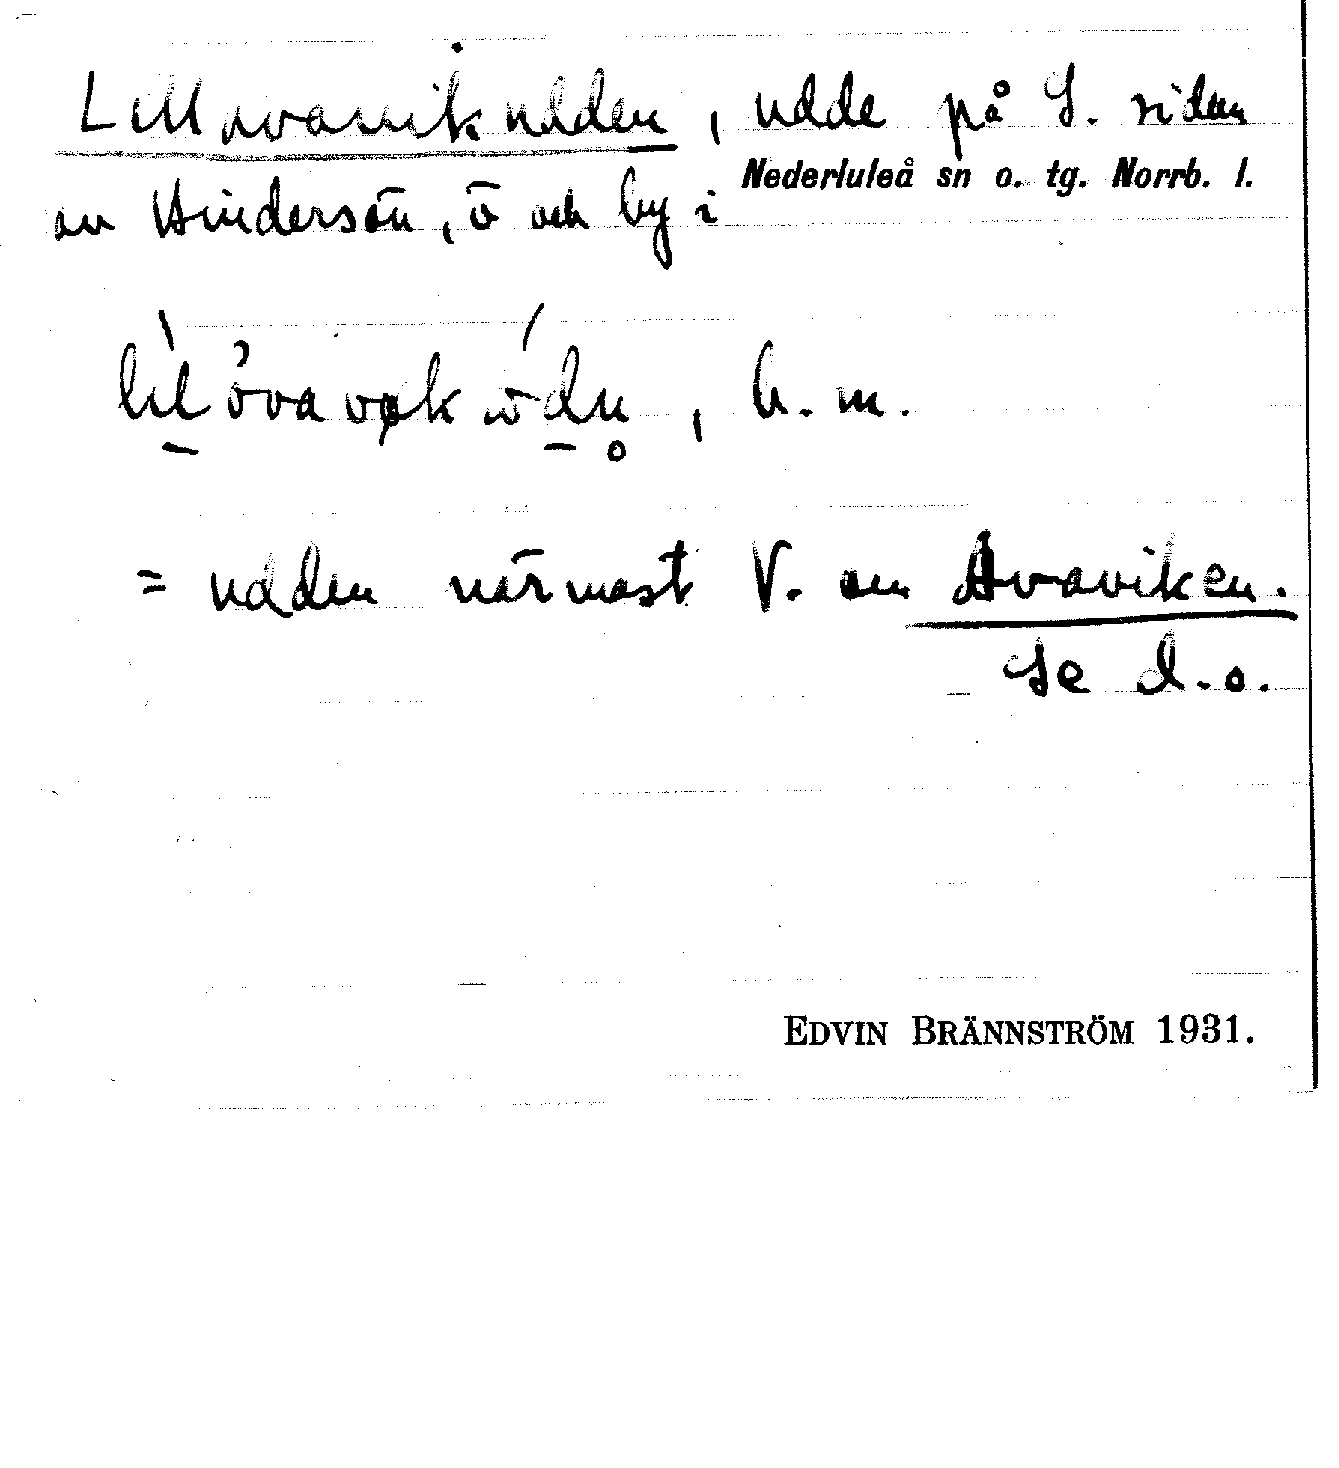 Lillavavikudden, udde på S. sidan
av Hindersön, ö och by i Nederluleå sn o. tg. Norrb. l.
b. m.
= udden närmast V. om Avaviken.
Se d.o.
EDVIN BRÄNNSTRÖM 1931.